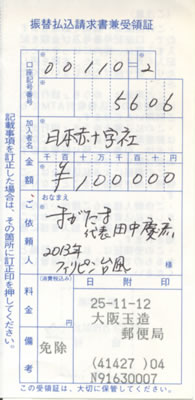 振替払込請求書兼受領証
口座記号番号
00110=2
5606
加入者名
日本赤十字社
金額
千百十万千百十円
¥100000
ご依頼人
おなまえ
まがたま
代表 田中慶
2013年
フィリピン台風
様
料金
(消費税込み)
円
日附印
25-11-12
大阪玉造
郵便局
備考
免除
(41427)04
N91630007
記載事項を訂正した場合は、その箇所に訂正印を押してください。
この受領証は、大切に保管してください。